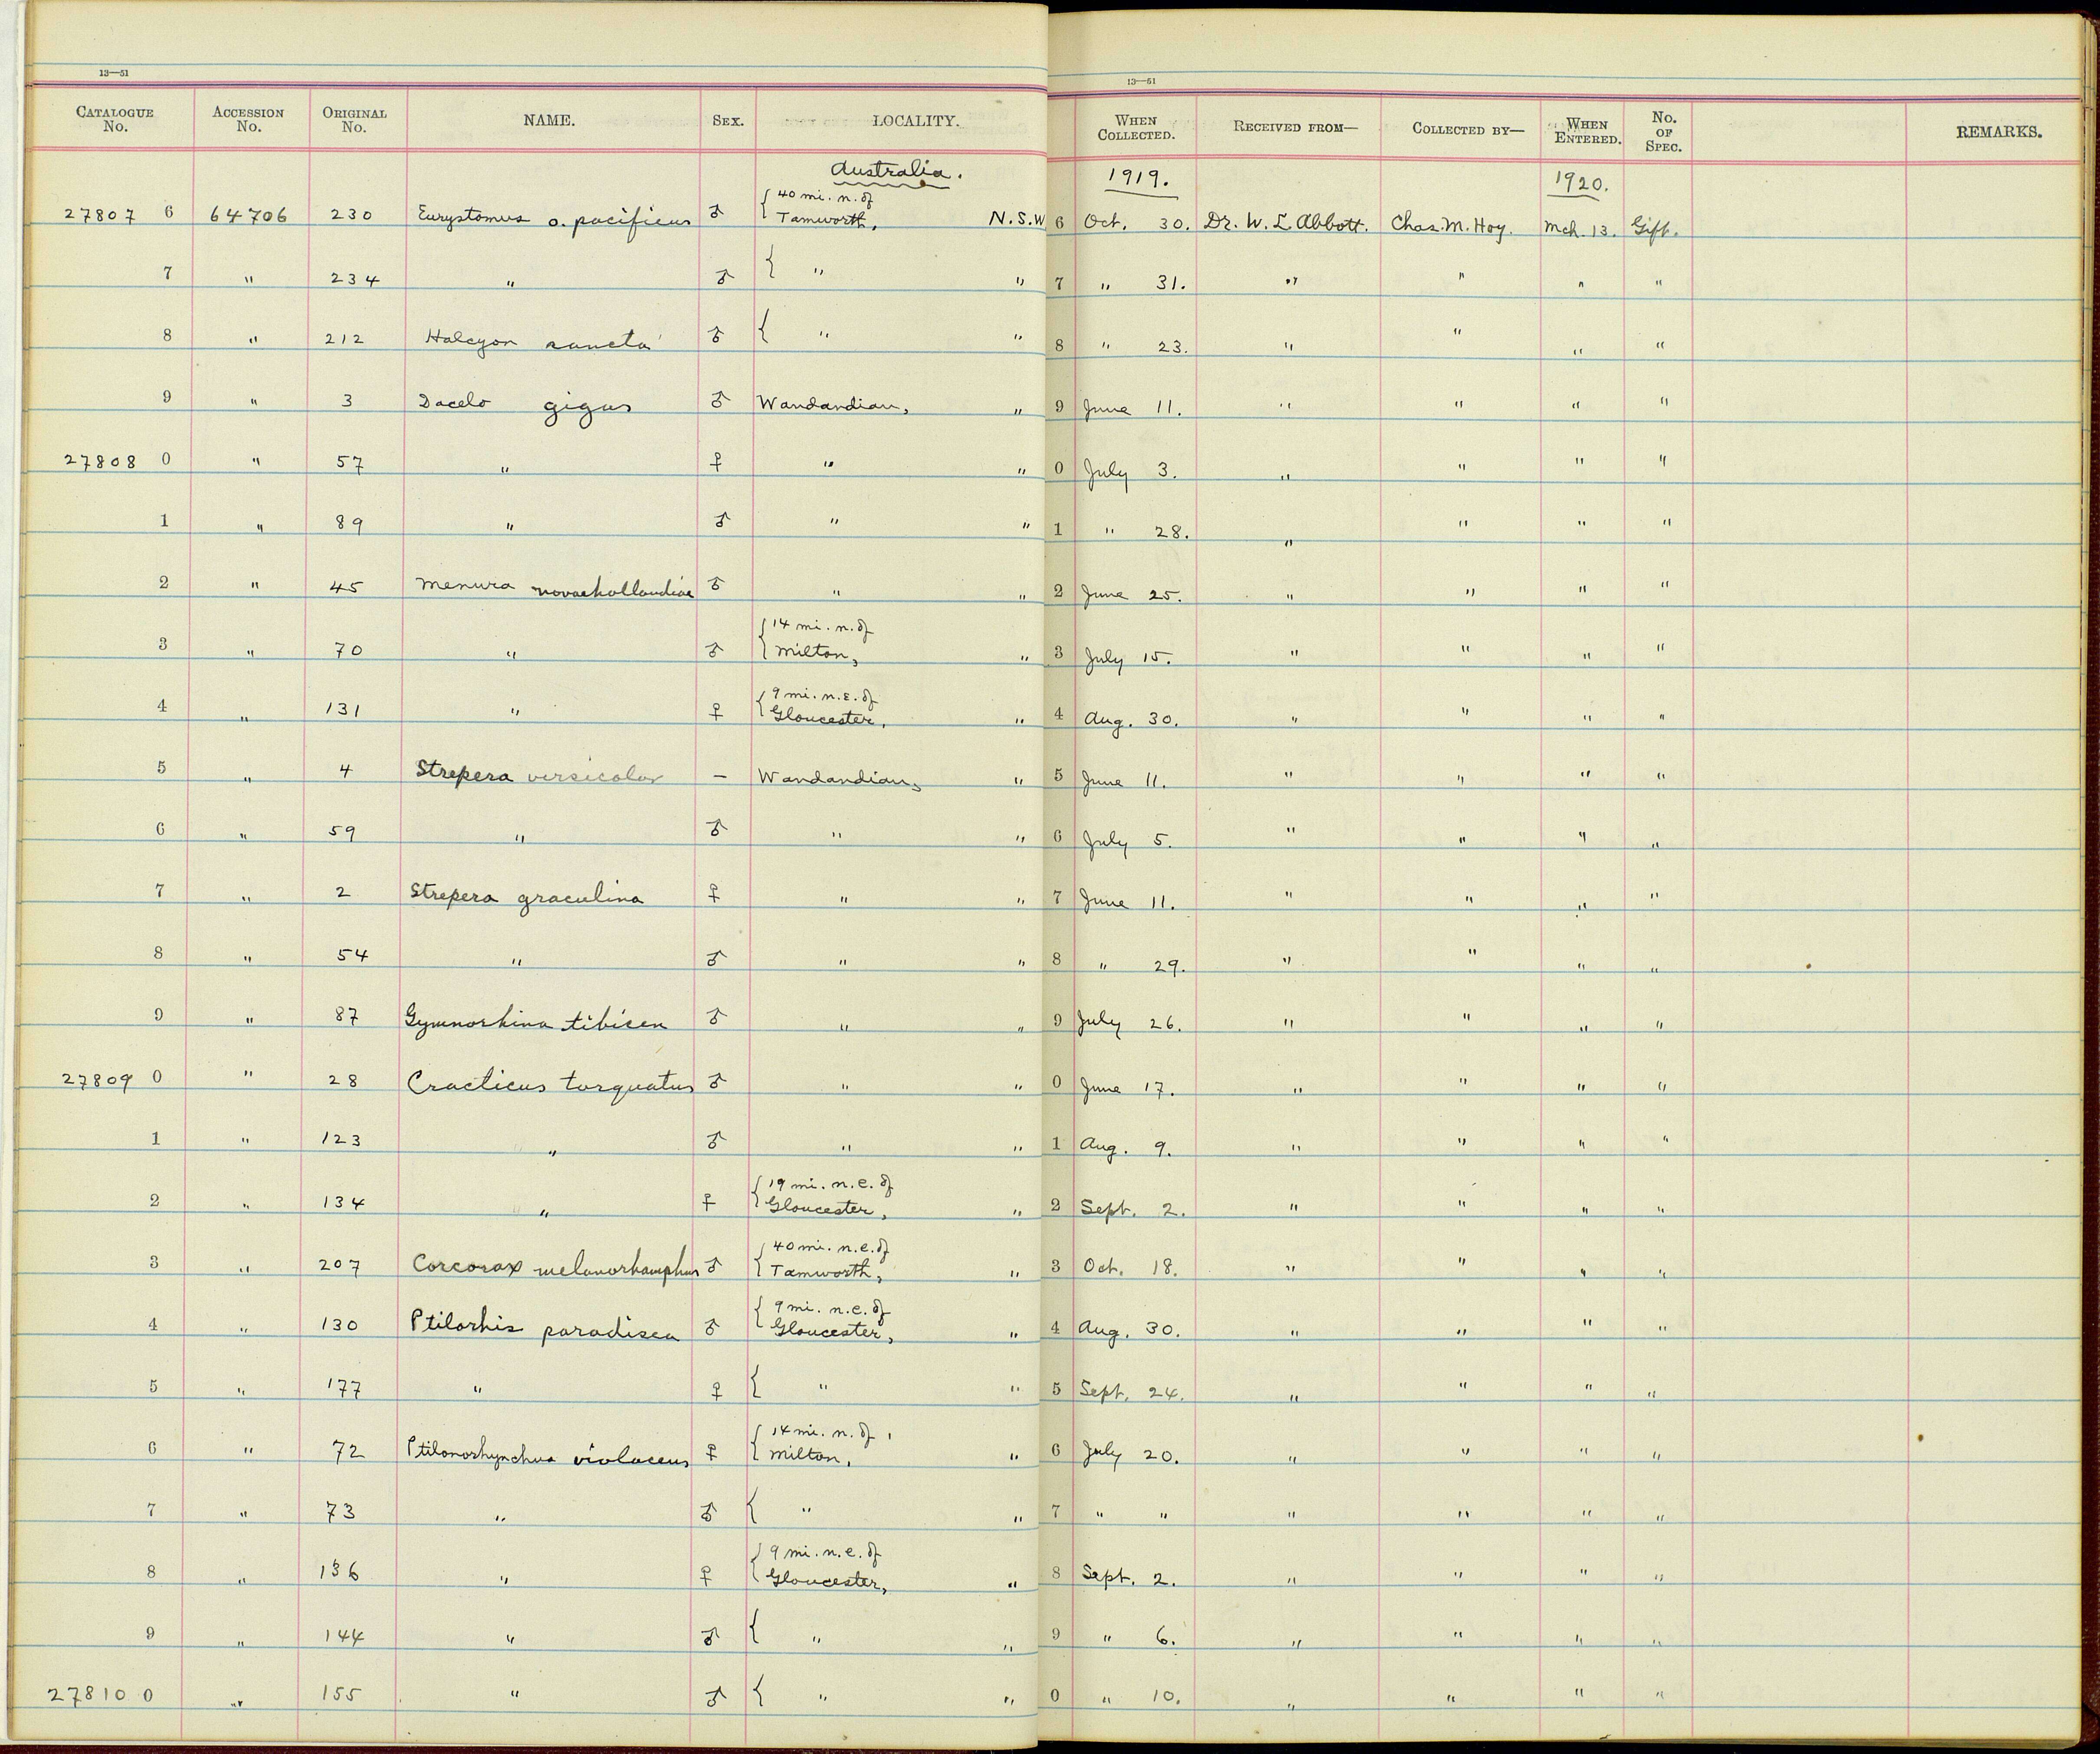 13—51
13—51
CATALOGUE No. ACCESSION No. ORIGINAL No. NAME. SEX. LOCALITY. WHEN COLLECTED. RECEIVED FROM— COLLECTED BY— WHEN ENTERED. No. OF SPEC. REMARKS.
Australia. 1919. 1920.
{40 mi. n. of
27807 6 64706 230 Eurystomus o. pacificus ♂ Tamworth, N.S.W 6 Oct. 30. Dr. W. L. Abbott. Chas. M. Hoy. Mch. 13. Gift.
7 " 234 " ♂ { " " 7 " 31. " " " "
8 " 212 Halcyon sancta ♂ { " " 8 " 23. " " " "
9 " 3 Dacelo gigas ♂ Wandandian, " 9 June 11. " " " "
27808 0 " 57 " ♀ " " 0 July 3. " " " "
1 " 89 " ♂ " " 1 " 28. " " " "
2 " 45 Menura novaehollandiae ♂ " " 2 June 25. " " " "
{14 mi. n. of
3 " 70 " ♂ Milton, " 3 July 15. " " " "
{9 mi. n.e. of
4 " 131 " ♀ Gloucester, " 4 Aug. 30. " " " "
5 " 4 Strepera versicolor — Wandandian, " 5 June 11. " " " "
6 " 59 " ♂ " " 6 July 5. " " " "
7 " 2 Strepera graculina ♀ " " 7 June 11. " " " "
8 " 54 " ♂ " " 8 " 29. " " " "
9 " 87 Gymnorhina tibicen ♂ " " 9 July 26. " " " "
27809 0 " 28 Cracticus torquatus ♂ " " 0 June 17. " " " "
1 " 123 " ♂ " " 1 Aug. 9. " " " "
{19 mi. n.e. of
2 " 134 " ♀ Gloucester, " 2 Sept. 2. " " " "
{40 mi. n.e. of
3 " 207 Corcorax melanorhamphus ♂ Tamworth, " 3 Oct. 18. " " " "
{9 mi. n.e. of
4 " 130 Ptilorhis paradisea ♂ Gloucester, " 4 Aug. 30. " " " "
5 " 177 " ♀ { " " 5 Sept. 24. " " " "
{14 mi. n. of
6 " 72 Ptilonorhynchus violaceus ♀ Milton, " 6 July 20. " " " "
7 " 73 " ♂ { " " 7 " " " " " "
{9 mi. n.e. of
8 " 136 " ♀ Gloucester, " 8 Sept. 2. " " " "
9 " 144 " ♂ { " " 9 " 6. " " " "
27810 0 " 155 " ♂ { " " 0 " 10. " " " "